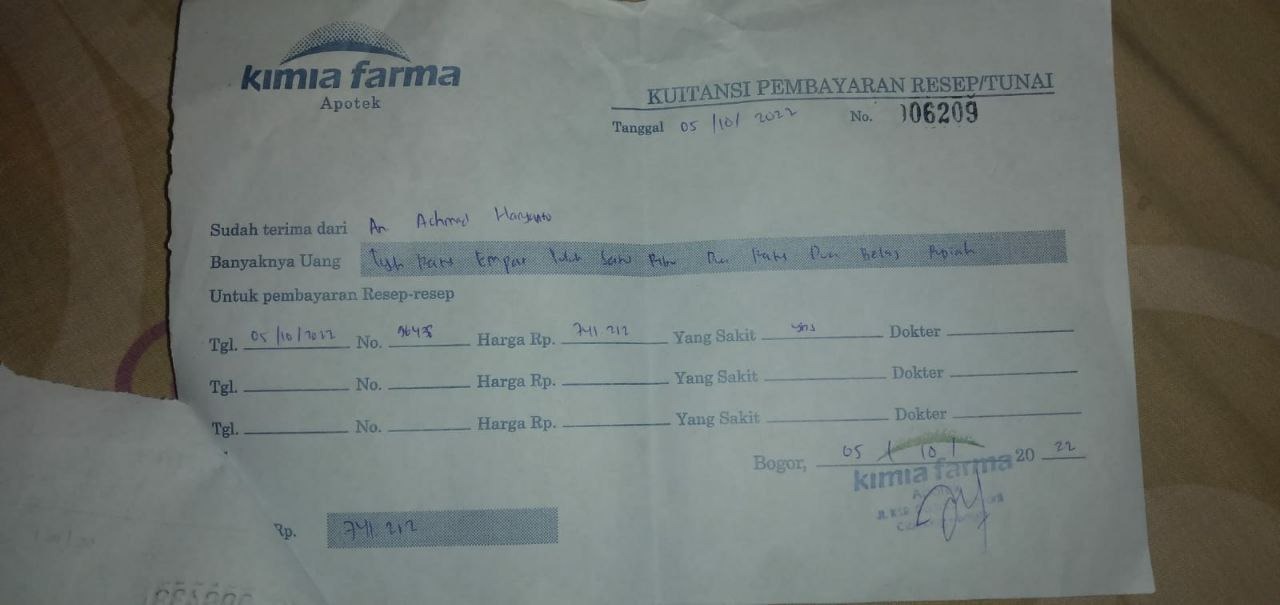 kimia farma
Apotek
KUITANSI PEMBAYARAN RESEP/TUNAI
Tanggal 05/10/2022 No. 006209
Sudah terima dari An Achmad Haryanto
Banyaknya Uang Tujuh Ratus Empat Puluh Satu Ribu Dua Ratus Dua Belas Rupiah
Untuk pembayaran Resep-resep
Tgl. 05/10/2022 No. Harga Rp. 741.212 Yang Sakit Dokter
Tgl. No. Harga Rp. Yang Sakit Dokter
Tgl. No. Harga Rp. Yang Sakit Dokter
Bogor, 05/10/ 2022
kimia farma
Rp. 741.212